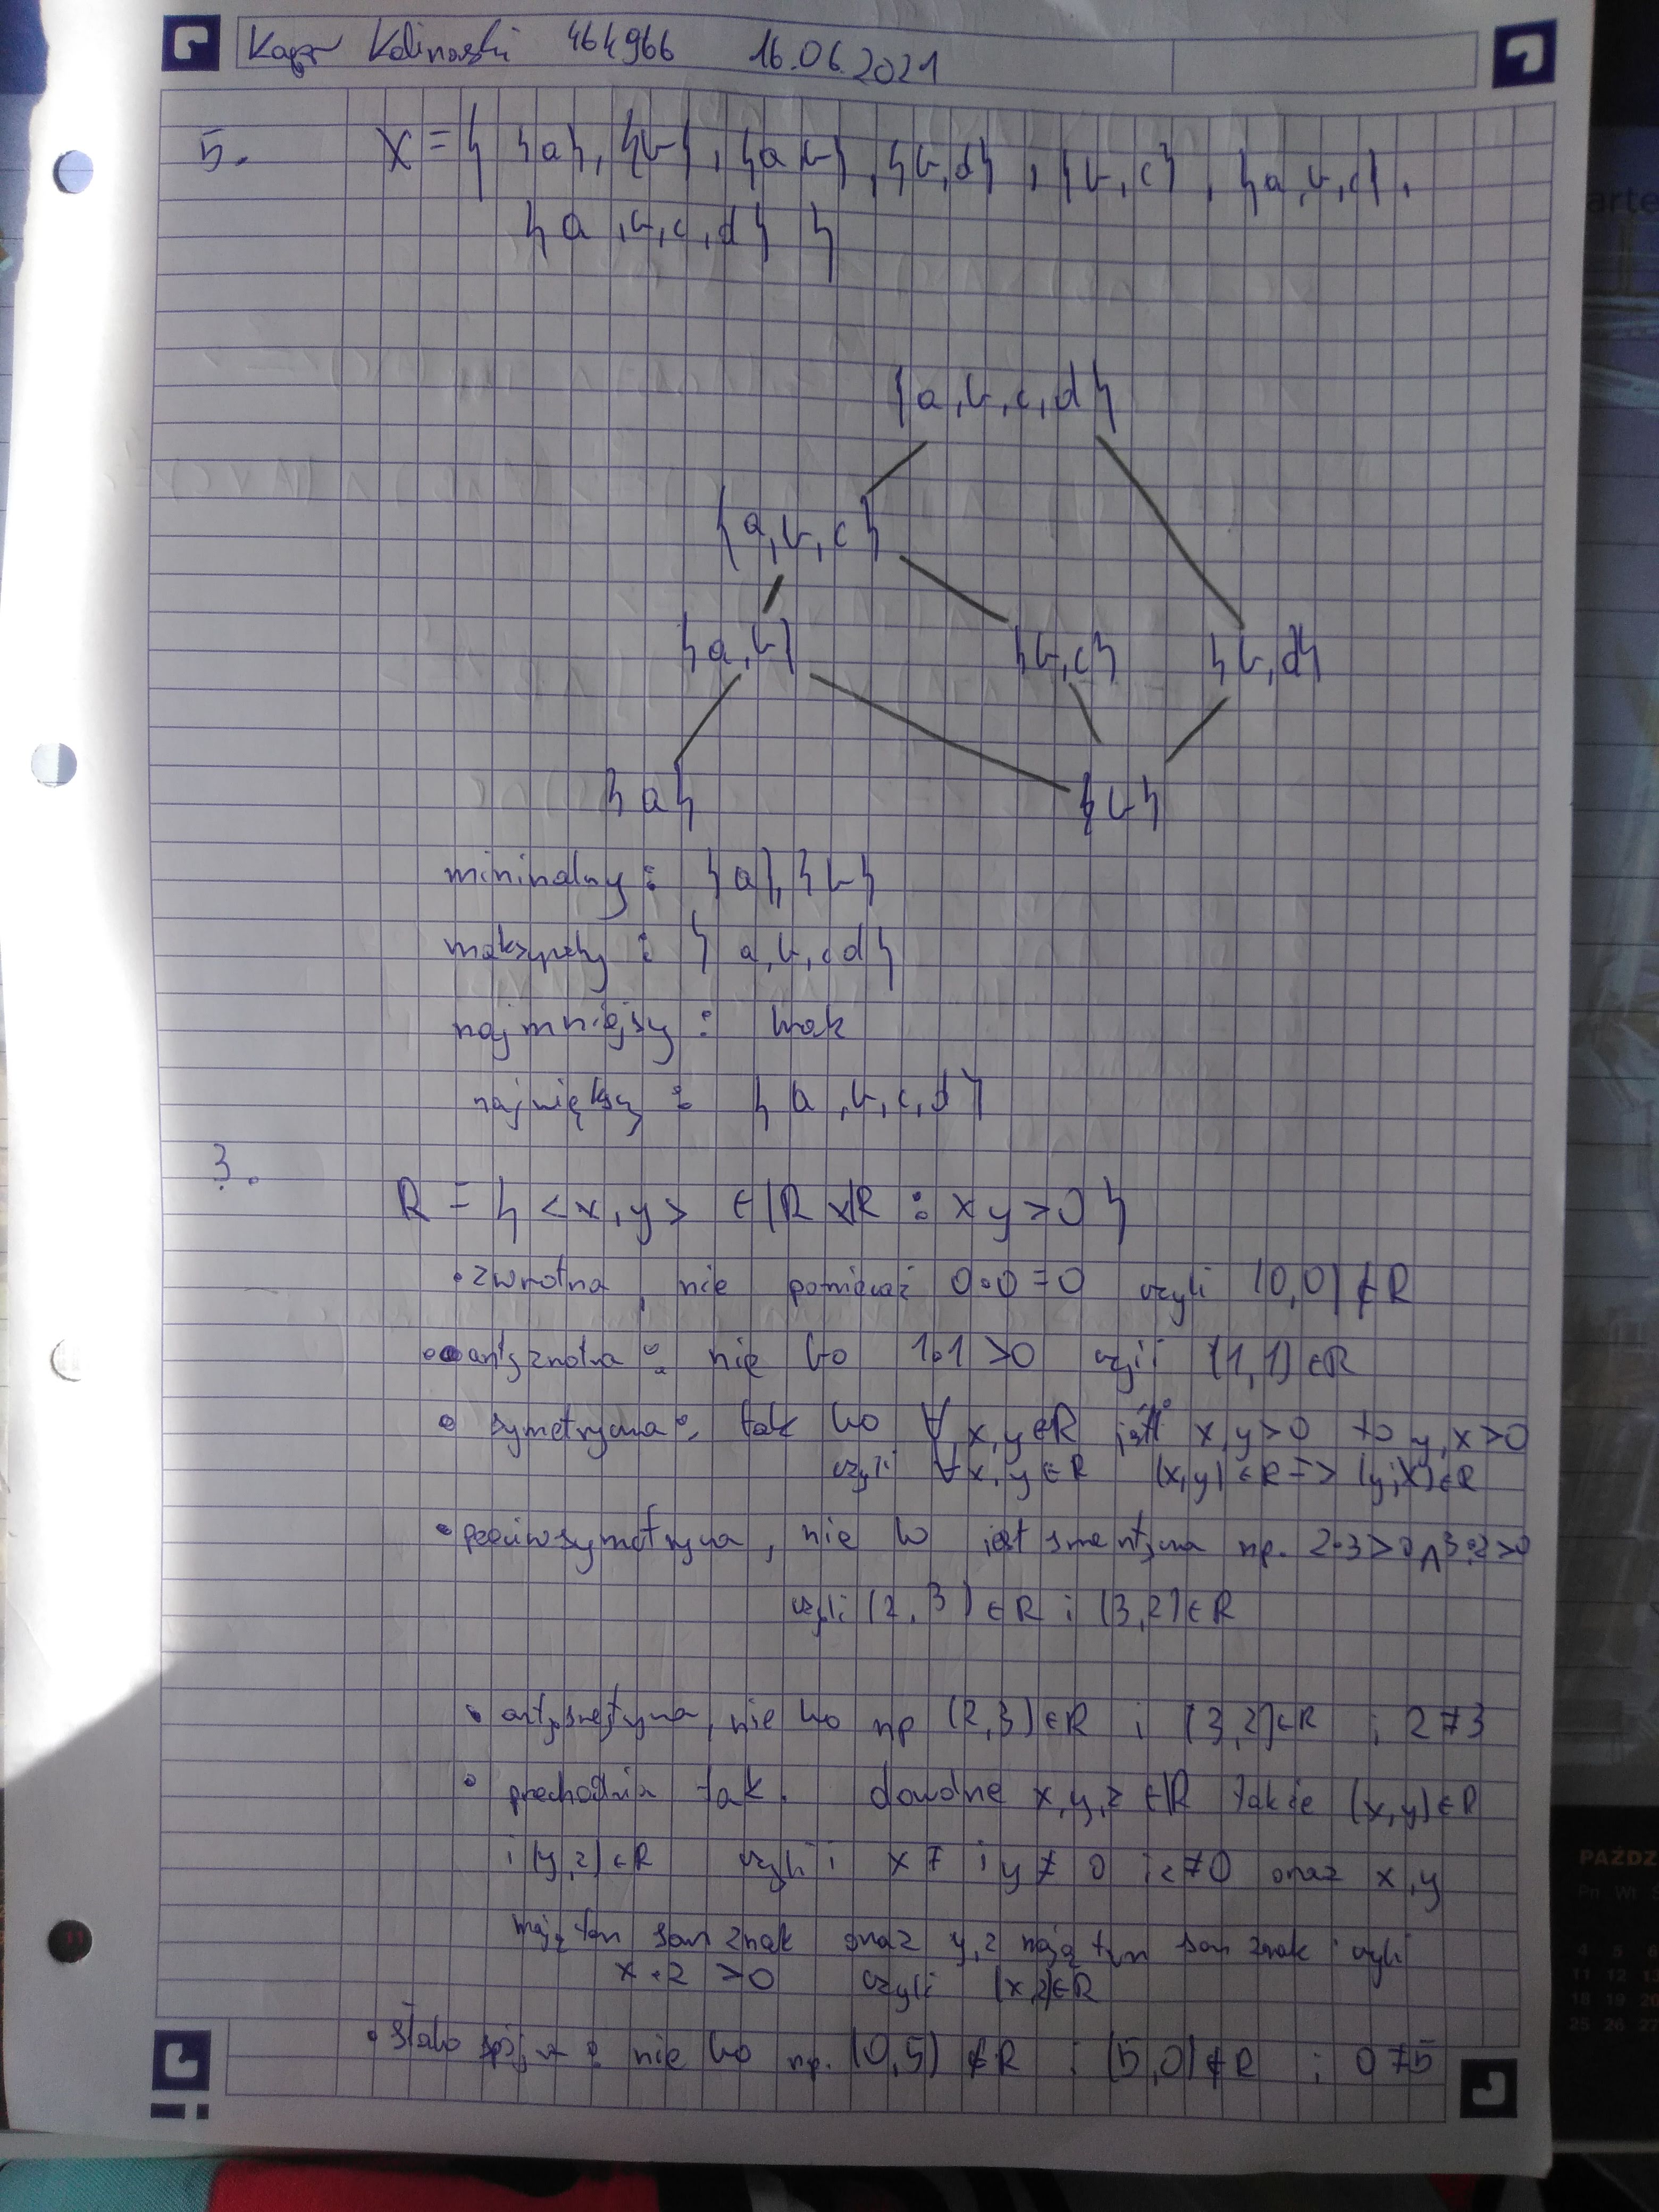 Kacper Kalinowski 464966 16.06.2021
5. X = { {a}, {b}, {a,b}, {b,d}, {b,c}, {a,b,c},
{a,b,c,d} }
{a,b,c,d}
{a,b,c}
{a,b} {b,c} {b,d}
{a} {b}
minimalny: {a}, {b}
maksymalny: {a,b,c,d}
najmniejszy: brak
największy: {a,b,c,d}
3.
R = { <x,y> ∈ ℝ×ℝ : xy>0 }
• zwrotna, nie ponieważ 0·0=0 czyli (0,0)∉R
• antyzwrotna: nie bo 1·1>0 czyli (1,1)∈R
• symetryczna: tak bo ∀x,y∈R jeśli x,y>0 to y,x>0
czyli ∀x,y∈R (x,y)∈R => (y,x)∈R
• przeciwsymetryczna, nie bo jest symetryczna np. 2·3>0 ∧ 3·2>0
czyli (2,3)∈R i (3,2)∈R
• antysymetryczna, nie bo np (2,3)∈R i (3,2)∈R i 2≠3
• przechodnia tak. dowolne x,y,z∈ℝ takie (x,y)∈R
i (y,z)∈R czyli x≠ i y≠0 i z≠0 oraz x,y
mają ten sam znak oraz y,z mają ten sam znak czyli
x·z >0 czyli (x,z)∈R
• słabo spójna: nie bo np. (0,5)∉R i (5,0)∉R i 0≠5
PAŹDZ
Pn Wt
4 5 6
11 12 13
18 19 20
25 26 27